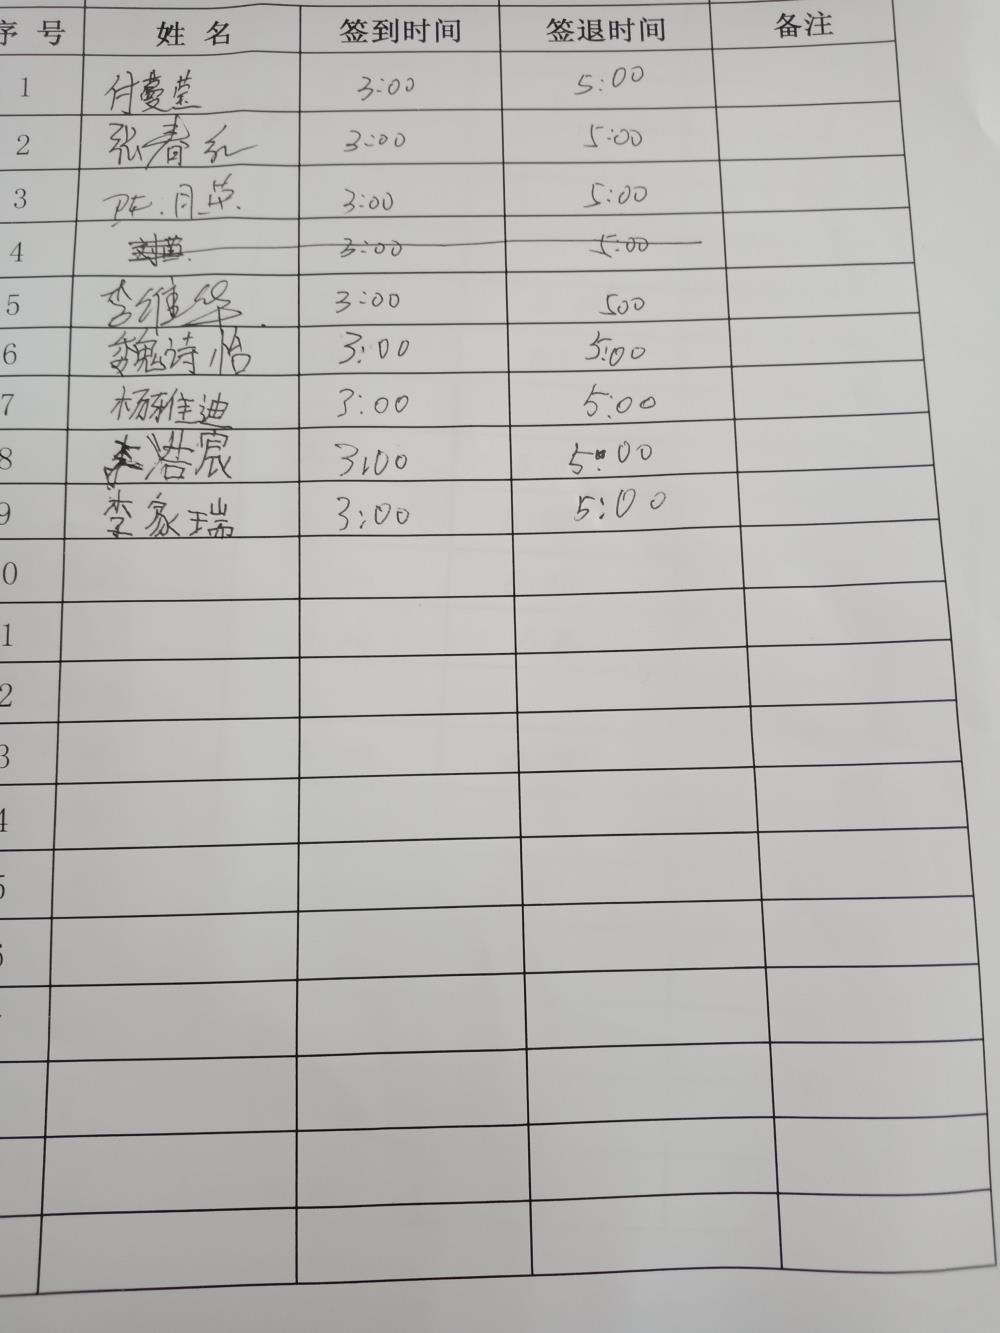 序 号 姓 名 签到时间 签退时间 备注
1 付蔓莹 3:00 5:00
2 张春红 3:00 5:00
3 3:00 5:00
4 刘苗 3:00 5:00
5 李维华 3:00 500
6 魏诗怡 3:00 5:00
7 杨雅迪 3:00 5:00
8 李浩宸 3:00 5:00
9 李家瑞 3:00 5:00
0
1
2
3
4
5
6